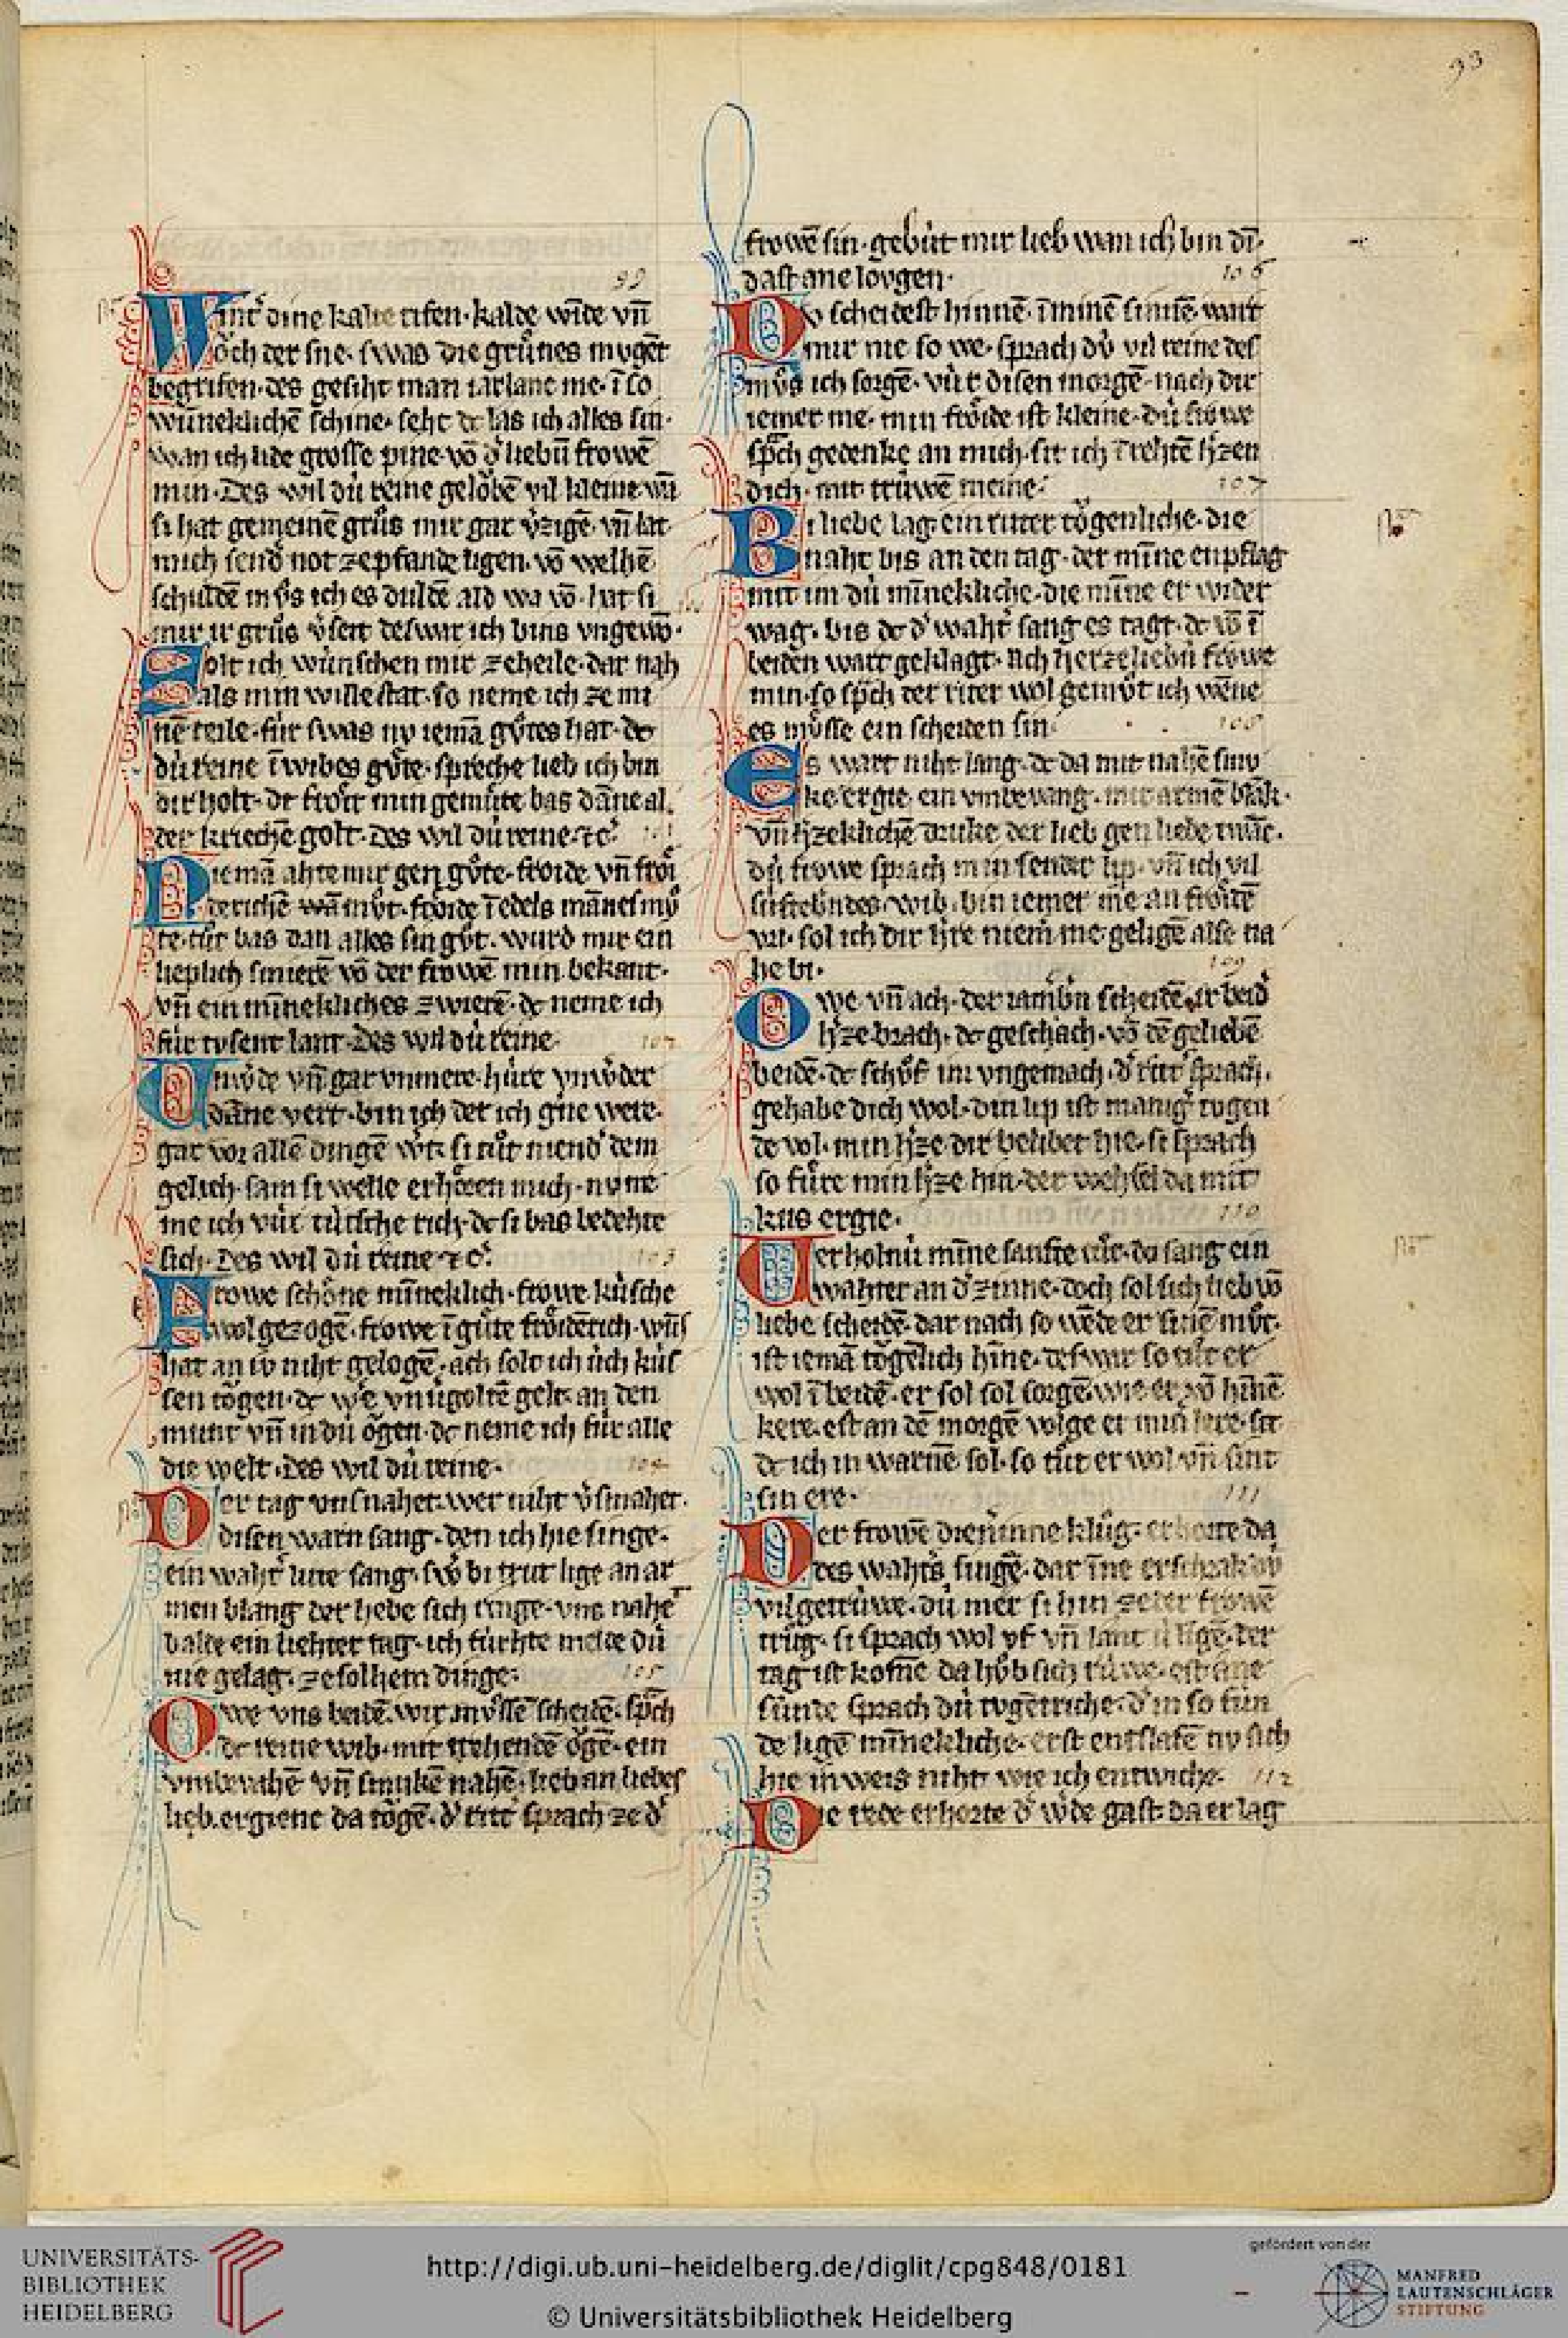 93
99
Wint᷑ dine kalte rifen· kalde wīde vn̄
ǒch der sne· swas die grůnes mugēt
begrifen· des gesiht man iarlanc me· ī so
wūneklichē schine· seht dc las ich alles sin·
wan ich lide grosse pine· vō d᷑ liebūn frowē
min· Des wil dú reine gelǒbē vil kleine· wā
si hat gemeinē grůs mir gar v᷑zigē· vn̄ lat
mich send᷑ not zepfande ligen· vō welhē
schuldē můs ich es duldē ald wa vō· hat si
mir ir grůs v᷑seit deswar ich bins vngewō·
Solt ich wúnschen mir zeheile· dar nah
als min wille stat· so neme ich ze mi
nē teile· fúr swas nv iemā gůtes hat· dc
dú reine ī wibes gůte· spreche lieb ich bin
dir holt· dc frǒit min gemůte bas dāne al
der kriechē golt· Des wil dú reine· ⁊c᷑·
101
Niemā ahte mir gen gůte· frǒide vn̄ frǒi
derichē wā můt· frǒide ī edels mānes mů
te· tůt bas dan alles sin gůt· wurd mir ein
lieplich smierē vō der frowē min bekant·
vn̄ ein mīnekliches zwierē· dc neme ich
fúr tvsent lant· Des wil dú reine·
102
Unw᷑de vn̄ gar vnmere· húre vnw᷑der
dāne vert· bin ich der ich g᷑ne were·
gar vor allē dingē w᷑t· si tůt niend᷑ dem
gelich· sam si welle erhǒren mich· nv ne
me ich vúr tútsche rich· dc si bas bedehte
sich· Des wil dú reine ⁊c᷑·
103
Frowe schǒne mīneklich· frowe kúsche
wol gezogē· frowe ī gůte frǒiderich· wūs
hat an iv niht gelogē· ach solt ich úch kús
sen tǒgen· dc we vnv᷑goltē gelt· an den
munt vn̄ in dú ǒgen· dc neme ich fúr alle
die welt· Des wil dú reine·
104
Der tag vns nahet· wer niht v᷑smahet·
disen warn sang· den ich hie singe·
ein waht᷑ lute sang· sw᷑ bi trut lige an ar
men blang der liebe sich tringe· vns nahet
balde ein liehter tag· ich fúrhte melde dú
nie gelag· zesolhem dinge·
105
Owe vns beidē· wir můssē scheidē· sp᷑ch
dc reine wib· mit trehendē ǒgē· ein
vmbevahē vn̄ smukē nahē· lieb an liebes
lieb· ergienc da tǒgē· d᷑ ritt᷑ sprach ze d᷑
frowē sin· gebút mir lieb wan ich bin dī·
dast ane lovgen·
106
Dv scheidest hinnē· ī minē sinnē· wart
mir nie so we· sprach dú vil reine des
můs ich sorgē· vúr disen morgē· nach dir
iemer me· min frǒide ist kleine· dú frowe
sp᷑ch gedenke an mich· sit ich ī rehtē h᷑zen
dich· mit trúwē meine·
107
Bi liebe lag· ein ritter tǒgenliche· die
naht bis an den tag· der mīne enpflag
mit im dú mīnekliche· die mīne er wider
wag· bis dc d᷑ waht᷑ sang es tagt· dc vō ī
beiden wart geklagt· Ach herzeliebú frowe
min· so sp᷑ch der riter wol gemůt ich wēne
es můsse ein scheiden sin·
108
Es wart niht lang· dc da mit nahē smv
ke ergie· ein vmbevang· mit armē blāk·
vn̄ h᷑zeklichē druke der lieb gen liebe twāc·
dú frowe sprach min sender lip· vn̄ ich vil
svftebndes wib· bin iemer me an frǒidē
vri· sol ich dir h᷑re niem᷑ me· geligē alse na
he bi·
109
Owe vn̄ ach· der iamb᷑n scheidē· ir beid᷑
h᷑ze brach· dc geschach· vō dē geliebē
beidē· dc schůf im vngemach· d᷑ ritt᷑ sprach·
gehabe dich wol· din lip ist manig᷑ tvgen
de vol· min h᷑ze dir belibet hie· si sprach
so fůre min h᷑ze hin· der wehsel da mit
kus ergie·
110
Verholnú mīne sanfte tůt· do sang ein
wahter an d᷑ zinne· doch sol sich lieb vō
liebe scheidē· dar nach so wēde er sinē můt·
ist iemā tǒgēlich hīne· deswar so tůt er
wol ī beidē· er sol sol sorgē· wie er vō hīnē
kere· est an dē morgē volge er min᷑ lere· sit
dc ich in warnē sol· so tůt er wol vn̄ sint
sin ere·
111
Der frowē dieneri̅nne klůg· erhorte da
des waht᷑s singē· dar īne erschrak dú
vil getrúwe· dú mer si hin zeder frowē
trůg· si sprach wol vf vn̄ lant ú ligē· der
tag ist komē da hůb sich rúwe· est ane
súnde sprach dú tvgētriche· d᷑ in so fūn
de ligē mīnekliche· erst entslafē nv sich
hie in weis niht wie ich entwiche·
112
Die rede erhorte d᷑ w᷑de gast· da er lag
UNIVERSITÄTS-
BIBLIOTHEK
HEIDELBERG
http://digi.ub.uni-heidelberg.de/diglit/cpg848/0181
© Universitätsbibliothek Heidelberg
gefördert von der
MANFRED
LAUTENSCHLÄGER
STIFTUNG